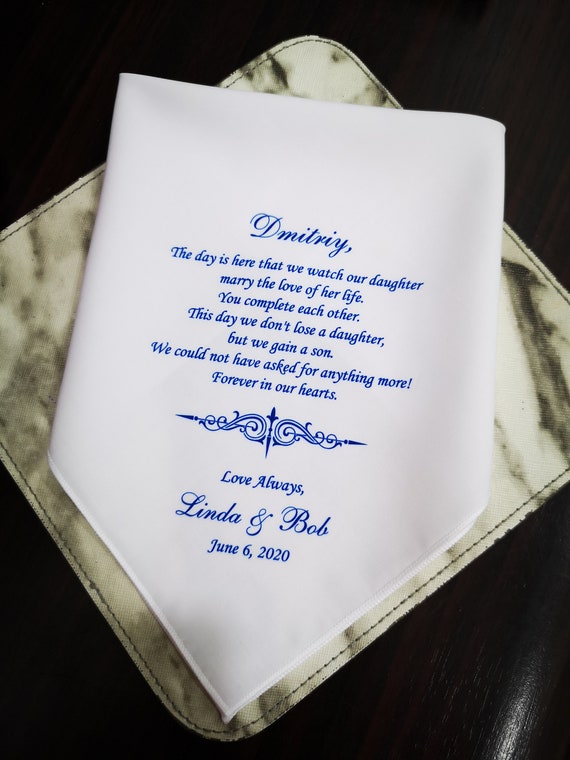 Dmitriy,
The day is here that we watch our daughter
marry the love of her life.
You complete each other.
This day we don't lose a daughter,
but we gain a son.
We could not have asked for anything more!
Forever in our hearts.
Love Always,
Linda & Bob
June 6, 2020